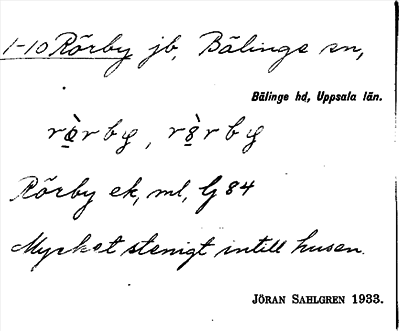 1-10 Rörby jb, Bälinge sn,
Bälinge hd, Uppsala län.
Rörby ek, ml, G 84
Mycket stenigt intill husen.
JÖRAN SAHLGREN 1933.